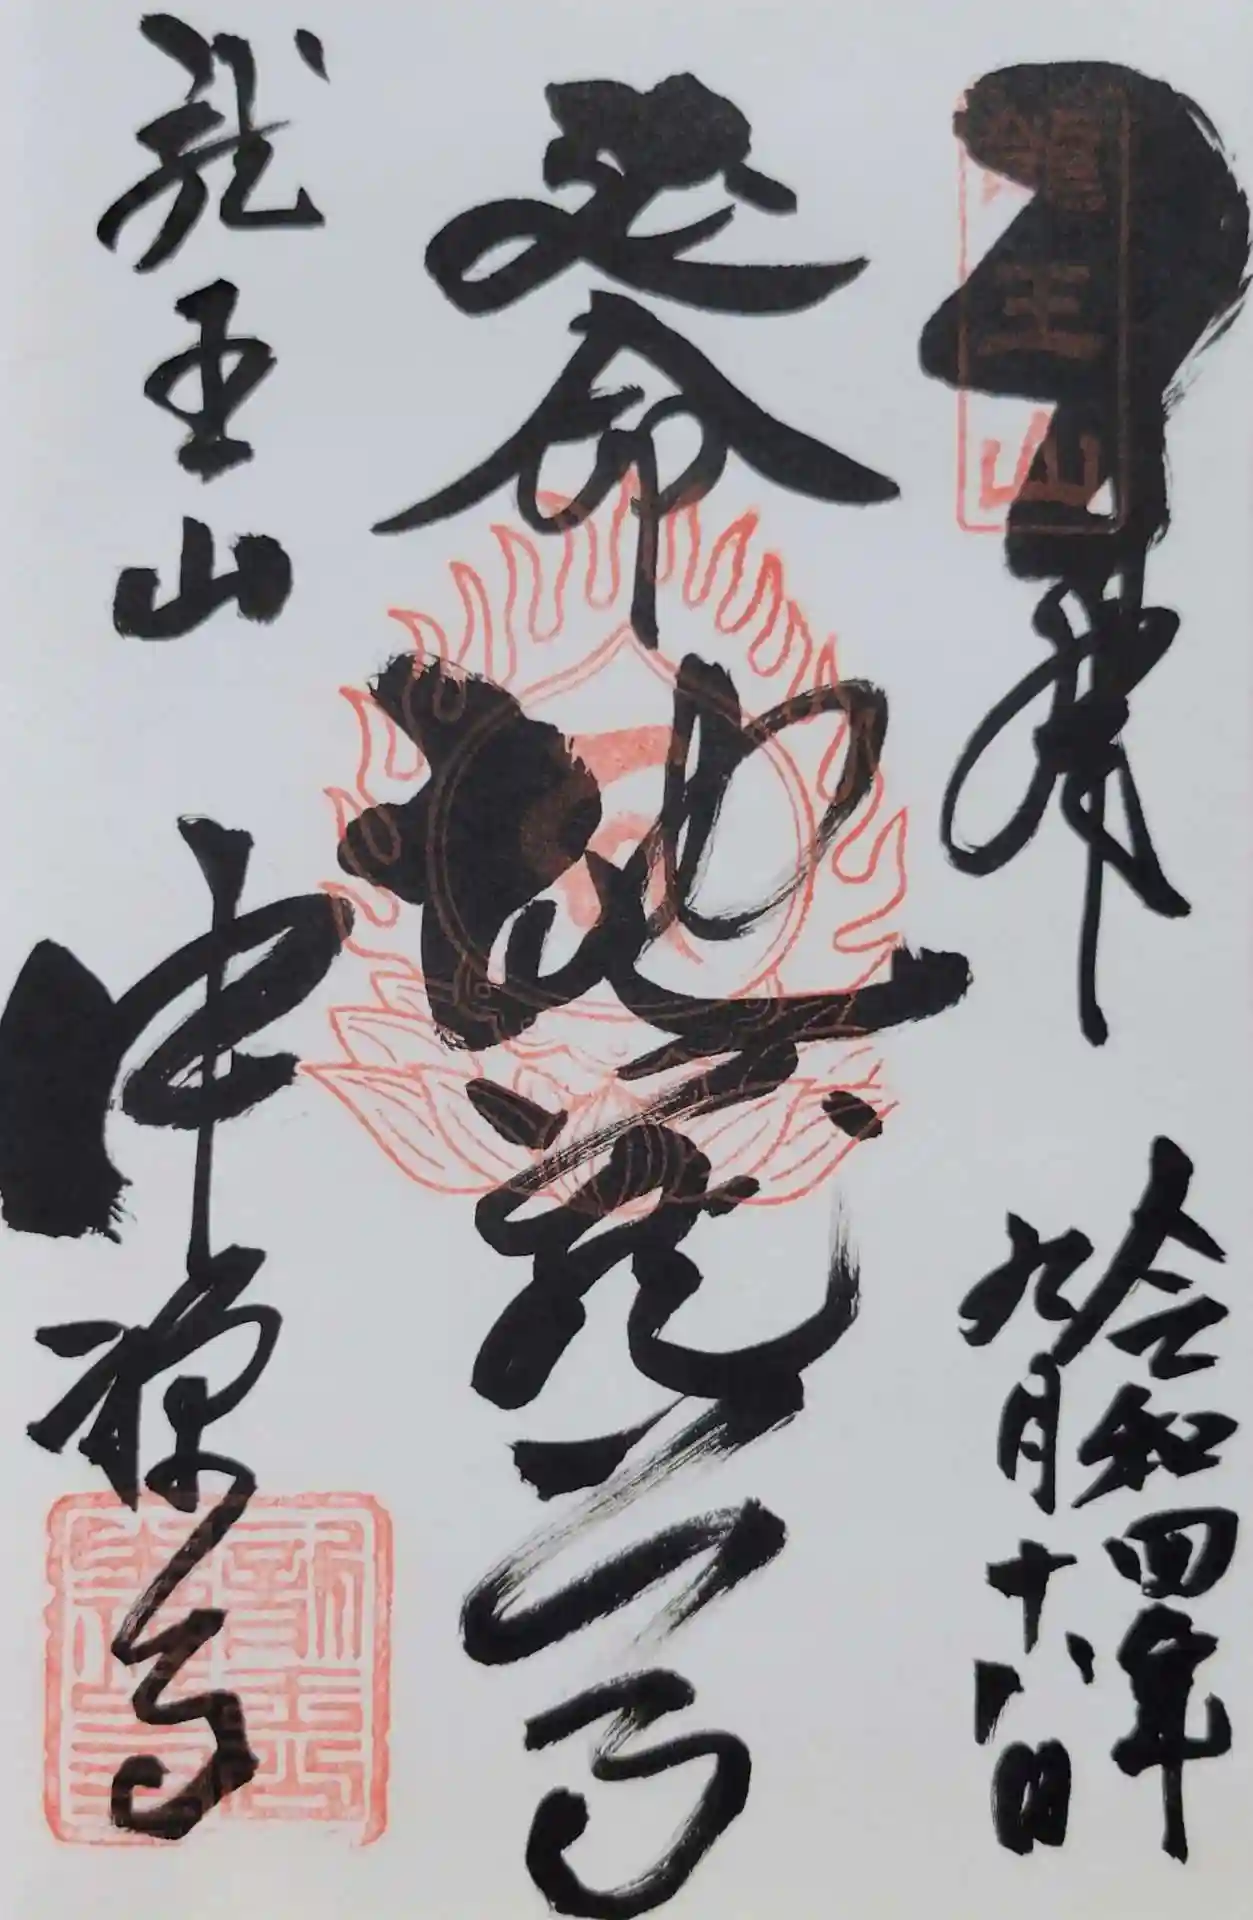 奉拝
令和四年
九月十八日
龍王山
延命地蔵尊
龍王山
中禅寺